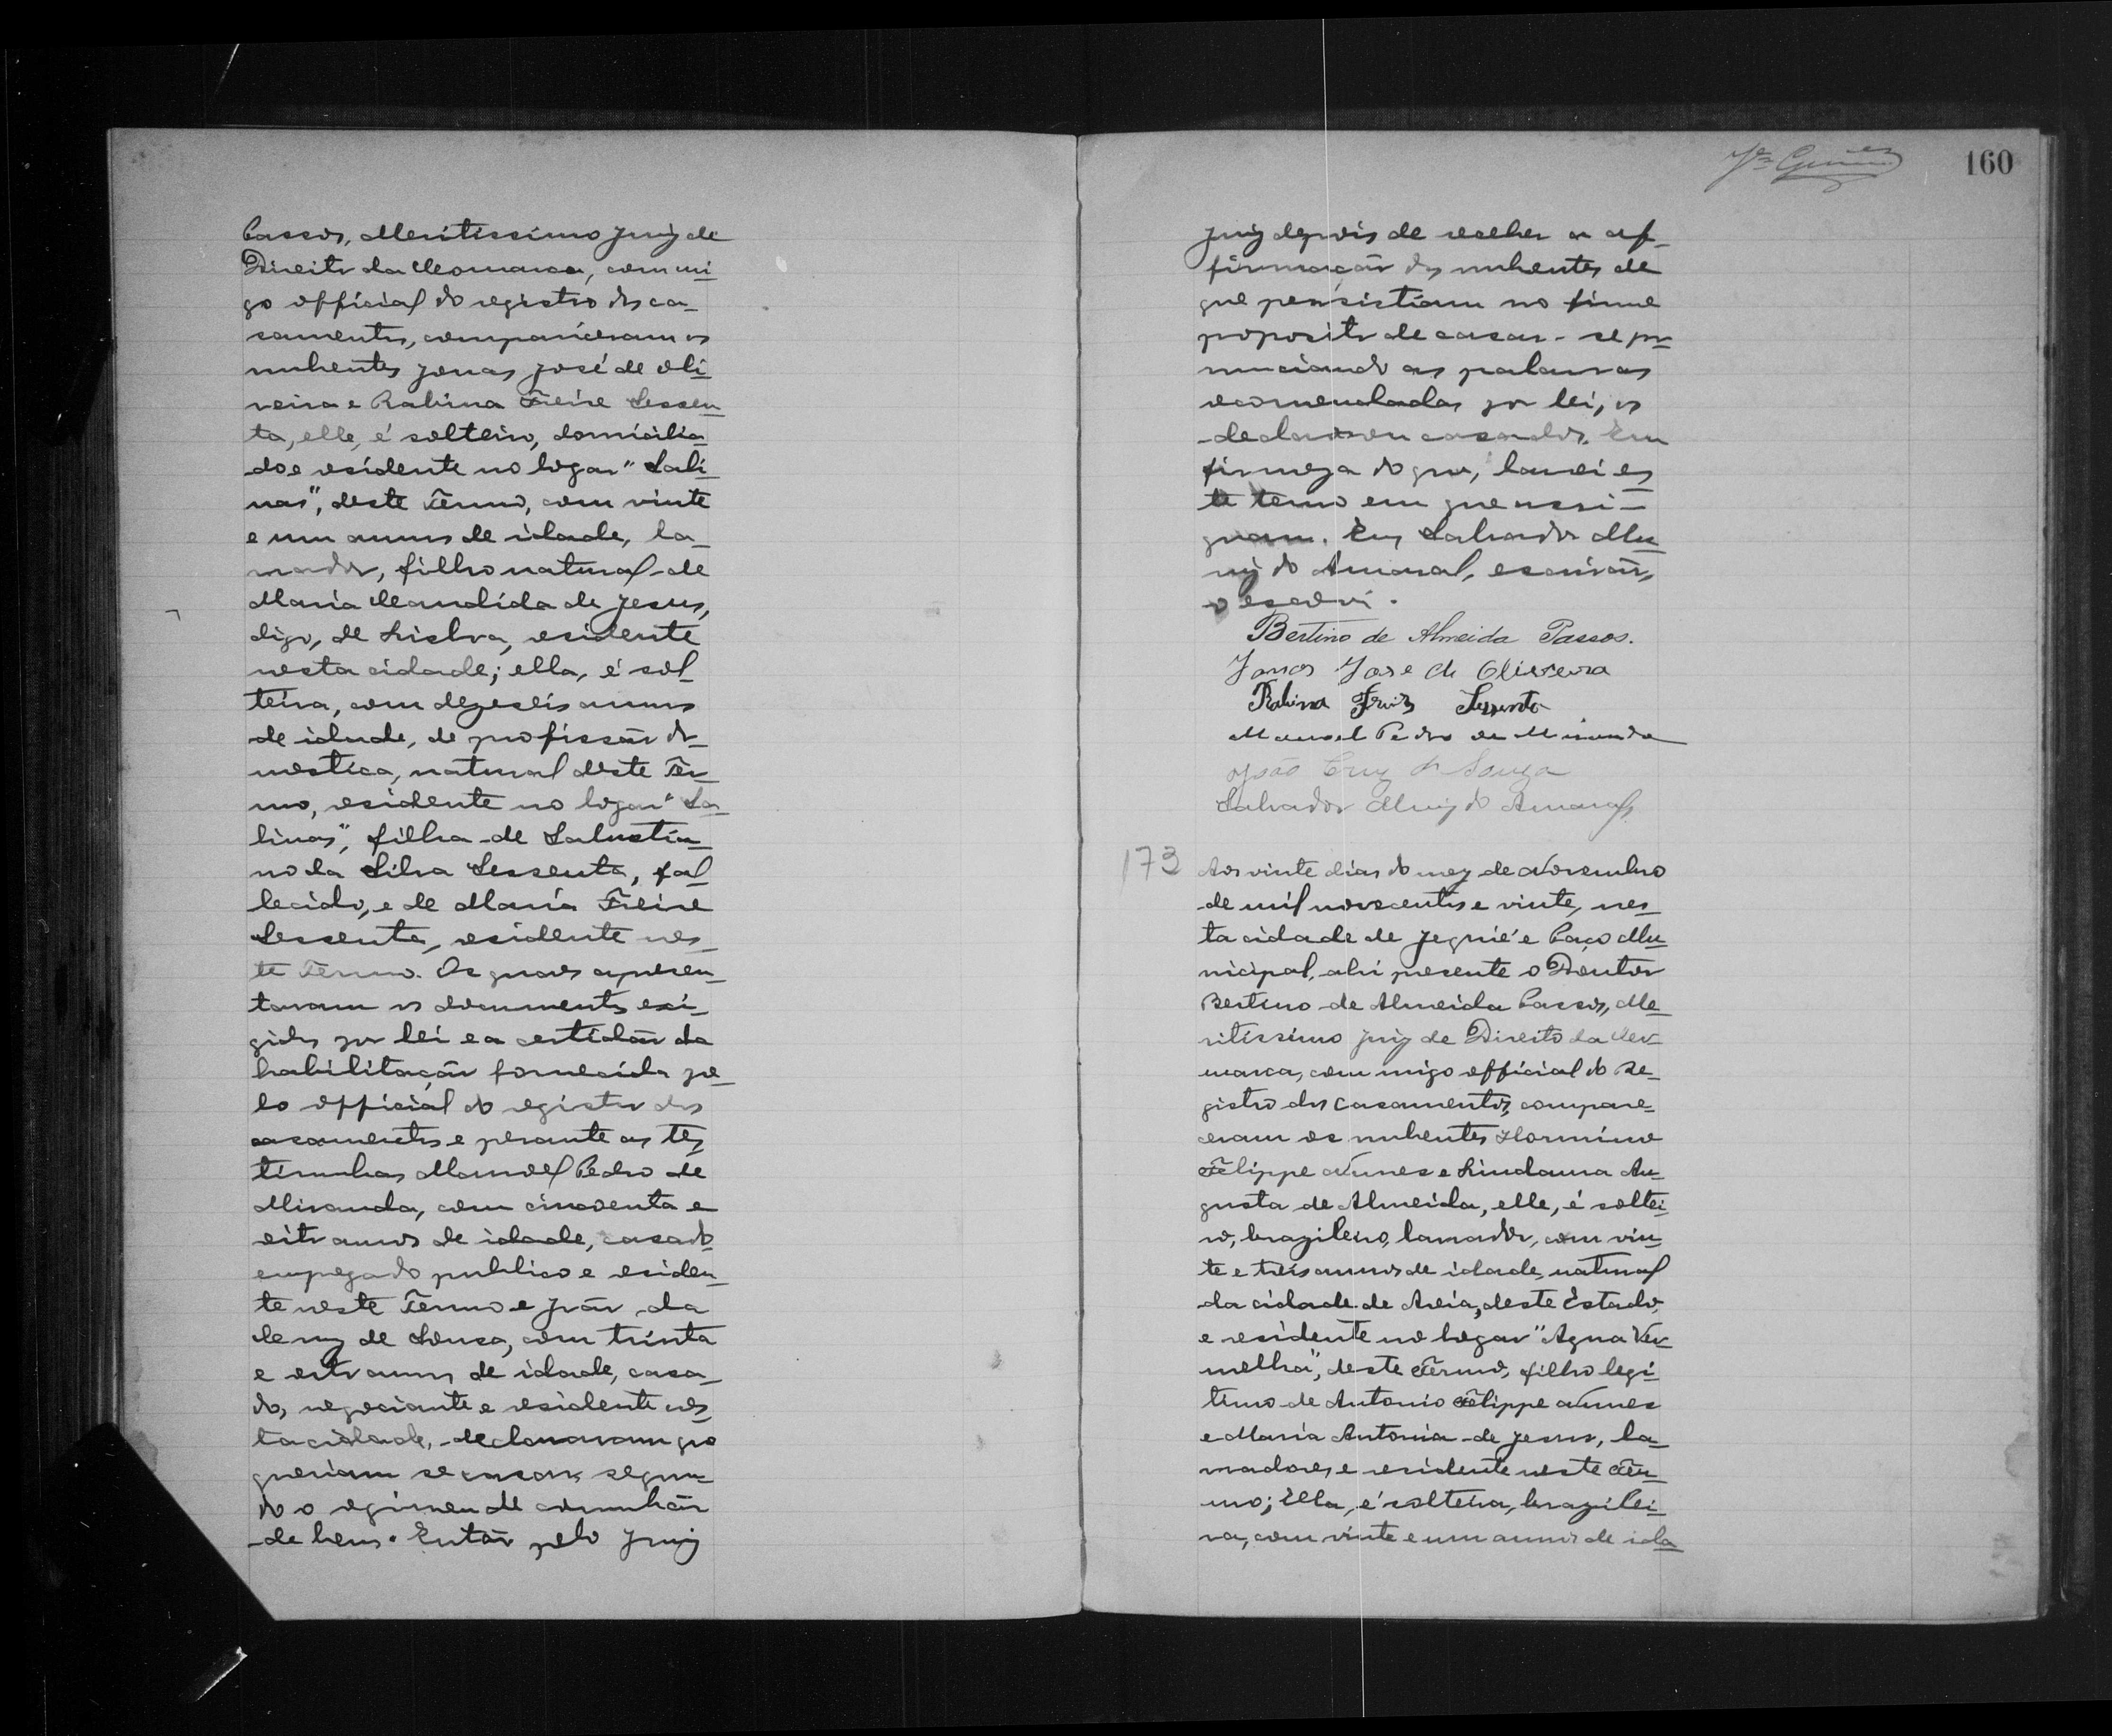 Passos, Meritissimo Juiz de
Direito da Comarca, commi
go official do registro dos ca-
samentos, compareceram os
nubentes Jonas José de Oli-
veira e Rabina Freire Sessen-
ta, elle, é solteiro, domicilia-
do e residente no logar "Sali-
nas", deste Termo, com vinte
e um annos de idade, la-
vrador, filho natural de
Maria Candida de Jesus,
digo, de Lisbra, residente
nesta cidade; ella, é sol-
teira, com dezeseis annos
de idade, de profissão do-
mestica, natural deste Ter-
mo, residente no logar "Sa-
linas", filha de Salustia-
no da Silva Sessenta, fal-
lecido, e de Maria Freire
Sessenta, residente nes-
te Termo. Os quaes apresen-
taram os documentos exi-
gidos por lei e a certidão da
habilitação fornecida pe-
lo official do registro dos
casamentos e perante as tes-
timunhas Manoel Pedro de
Miranda, com cincoenta e
oito annos de idade, casado
empregado publico e residen-
te neste Termo e João da
Cruz de Sousa, com trinta
e oito annos de idade, casa-
do, negociante e residente nes-
ta cidade, declararam que
queriam se casar, segun-
do o regimen de comunhão
de bens. Então pelo Juiz
160
Juiz depois de receber a af-
firmação dos nubentes de
que persistiam no firme
proposito de casar-se pro-
nunciando as palavras
recomendadas por lei, os
declarou casados. Em
firmeza do que, lavrei es-
te termo em que assi-
gnam. Eu, Salvador Mu-
niz do Amaral, escrivão,
o escrevi.
Bertino de Almeida Passos.
Jonas Jose de Oliveira
Rabina Freire Sessenta
Manoel Pedro de Miranda
João Cruz de Souza
Salvador Muniz do Amaral
173 Aos vinte dias do mez de Novembro
de mil novecentos e vinte, nes-
ta cidade de Jequié e Paço Mu-
nicipal, ahi presente o Doutor
Bertino de Almeida Passos, Me-
ritissimo Juiz de Direito da Co-
marca, commigo official do Re-
gistro dos casamentos, compare-
ceram os nubentes Hormino
Felippe Nunes e Lindaura Au-
gusta de Almeida, elle, é soltei-
ro, brazileiro, lavrador, com vin-
te e tres annos de idade, natural
da cidade de Areia, deste Estado,
e residente no logar "Agua Ver-
melha", deste Termo, filho legi-
timo de Antonio Felippe Nunes
e Maria Antonia de Jesus, la-
vradores e residente neste Ter-
mo; Ella, é solteira, brazilei-
ra, com vinte e um annos de ida